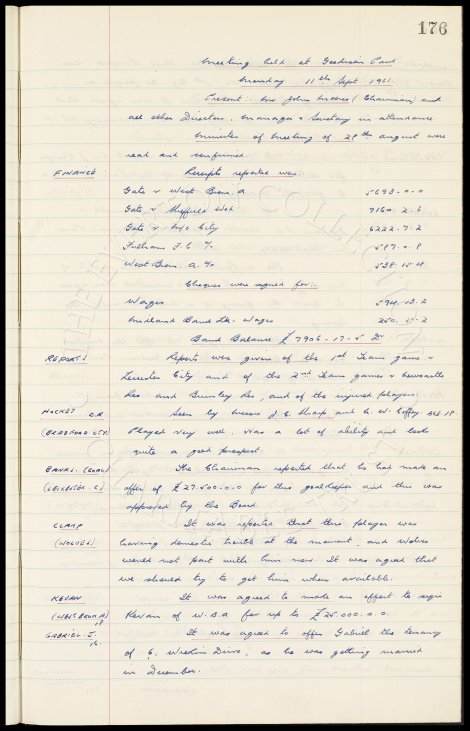 176
Meeting held at Goodison Park
Monday 11th Sept 1961.
Present: Mr John Moores (Chairman) and
all other Directors. Manager & Secretary in attendance.
Minutes of Meeting of 29th August were
read and confirmed.
FINANCE Receipts reported were:-
Gate v West Brom. A
Gate v Sheffield Wed. 7160. 2. 6
Gate v M/c City 6222. 7. 2
Fulham F.C % 587. 0. 8
West Brom. A. %
Cheques were signed for:-
Wages
Midland Bank Ltd. Wages
Bank Balance £ 7906. 17. 5 Dr
REPORTS Reports were given of the 1st Team game v
Leicester City and of the 2nd Team games v Newcastle
Res and Burnley Res, and of the injured players.
HOCKEY O.R Seen by Messrs J. C. Sharp and C. W. Coffey. AGE 18
(BRADFORD CITY) Played very well. Has a lot of ability and looks
quite a good prospect.
BANKS. (GOAL) The Chairman reported that he had made an
(LEICESTER. C) offer of £27.500.0.0 for this goalkeeper and this was
approved by the Board.
CLAMP It was reported that this player was
(WOLVES) having domestic trouble at the moment, and Wolves
would not part with him now. It was agreed that
we should try to get him when available.
KEVAN It was agreed to make an effort to sign
(WEST BROM. A) Kevan of W.B.A for up to £25000.0.0.
GABRIEL. J. It was agreed to offer Gabriel the tenancy
of 6, Drive, as he was getting married
in December.
THE EVERTON COLLECTION